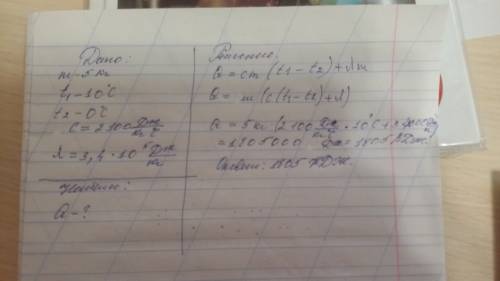 Дано:
m-5 кг
t₁-10°C
t₂-0°C
C=2100 Дж/кг°C
λ=3,4·10⁵ Дж/кг
Найти:
Q-?
Решение:
Q=cm(t₁-t₂)+λm
Q= m(c(t₁-t₂)+λ)
Q=5кг(2100 Дж/кг°C·10°C+
=1805000 Дж=1805кДж.
Ответ: 1805 кДж.